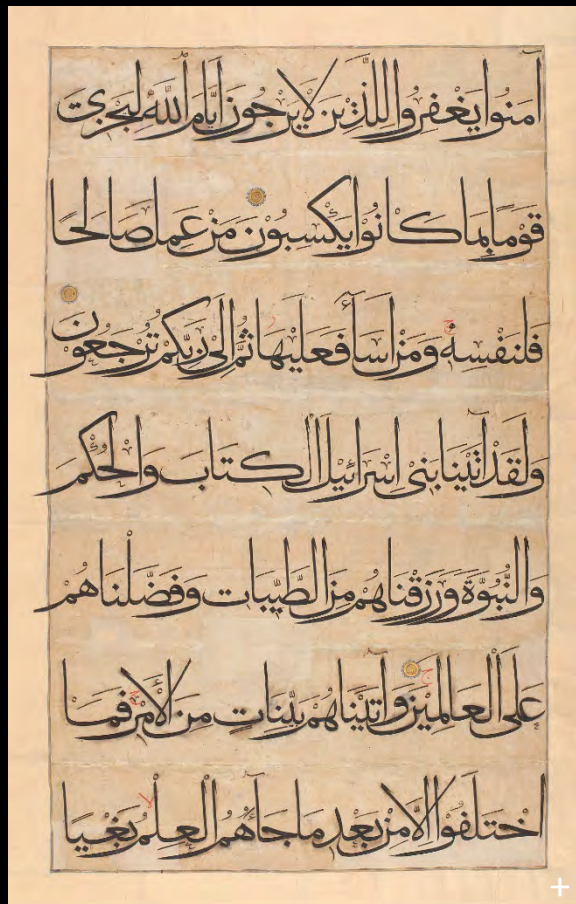 آمَنُوا يَغْفِرُوا لِلَّذِينَ لَا يَرْجُونَ أَيَّامَ اللَّهِ لِيَجْزِيَ
قَوْمًا بِمَا كَانُوا يَكْسِبُونَ مَنْ عَمِلَ صَالِحًا
فَلِنَفْسِهِ وَمَنْ أَسَاءَ فَعَلَيْهَا ثُمَّ إِلَى رَبِّكُمْ تُرْجَعُونَ
وَلَقَدْ آتَيْنَا بَنِي إِسْرَائِيلَ الْكِتَابَ وَالْحُكْمَ
وَالنُّبُوَّةَ وَرَزَقْنَاهُمْ مِنَ الطَّيِّبَاتِ وَفَضَّلْنَاهُمْ
عَلَى الْعَالَمِينَ وَآتَيْنَاهُمْ بَيِّنَاتٍ مِنَ الْأَمْرِ فَمَا
اخْتَلَفُوا إِلَّا مِنْ بَعْدِ مَا جَاءَهُمُ الْعِلْمُ بَغْيًا